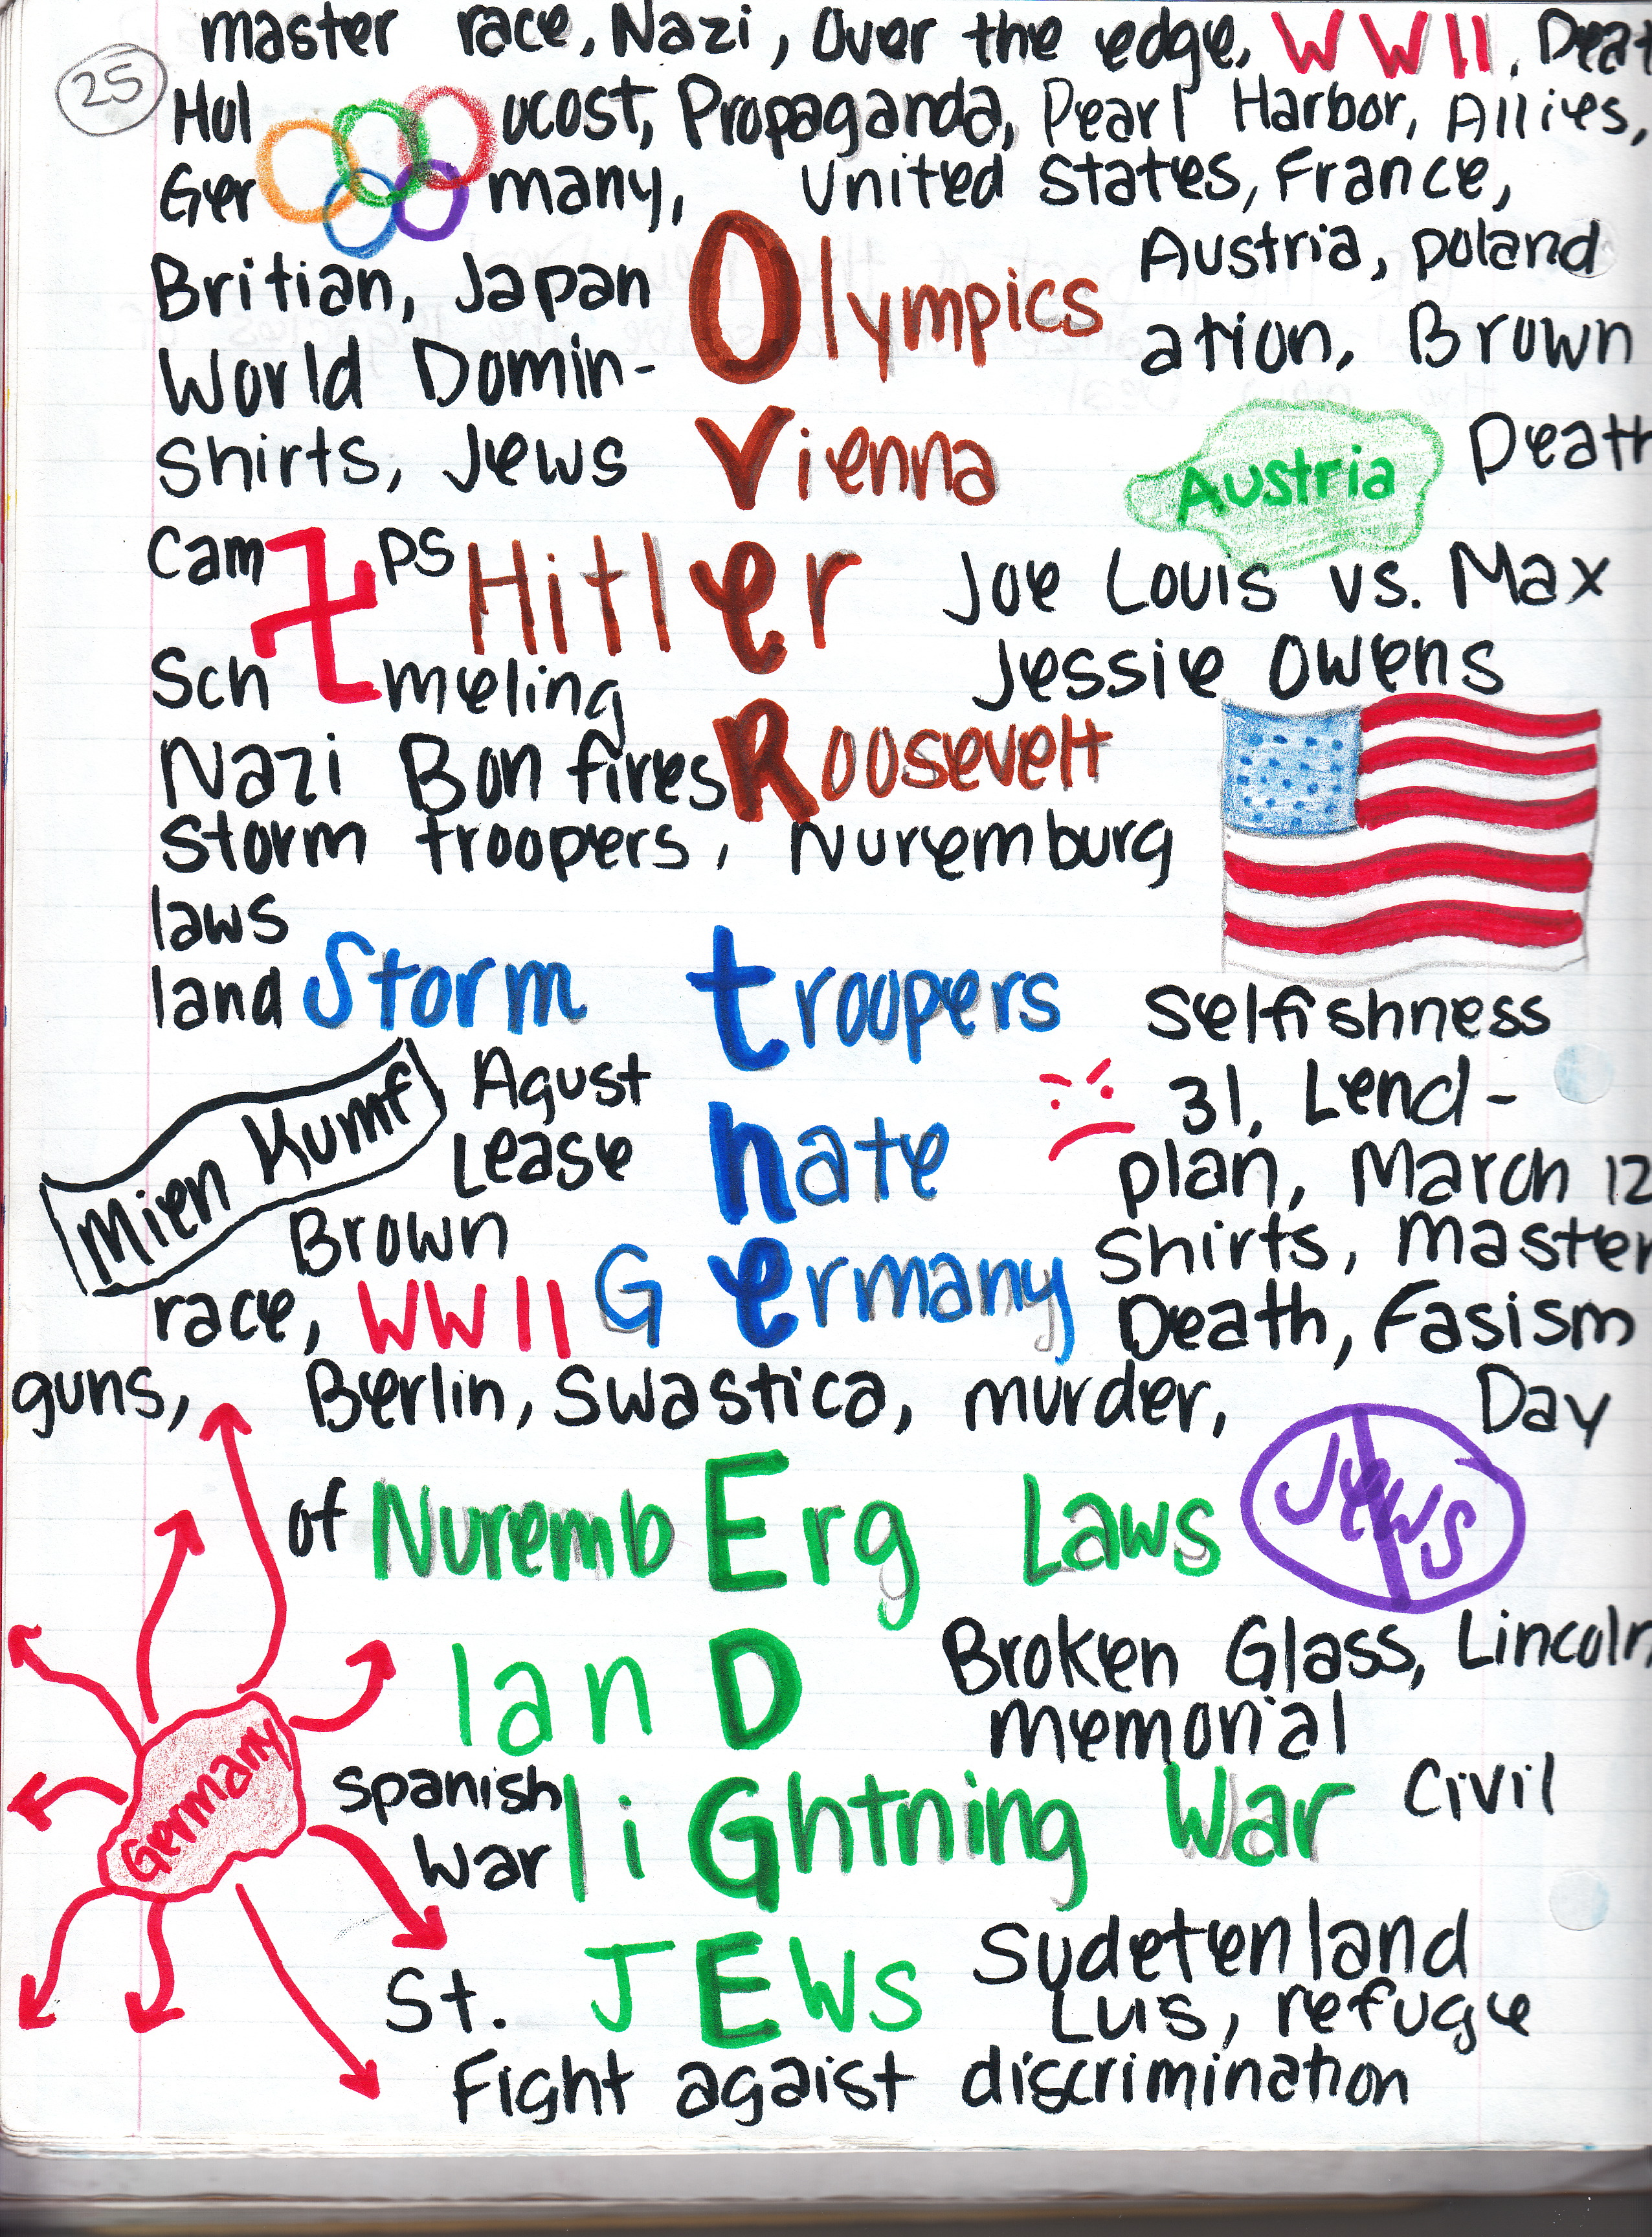 25
master race, Nazi, Over the edge, WWII, Deat
Hol ocost, Propaganda, Pearl Harbor, Allies,
Ger many, United States, France,
Britian, Japan Olympics Austria, poland
World Domin- ation, Brown
Shirts, Jews Vienna Austria Death
Cam ps Hitler Joe Louis vs. Max
Sch meling Jessie Owens
Nazi Bon fires Roosevelt
Storm troopers, Nuremburg
laws
land Storm troopers Selfishness
Mien Kumf Agust hate 31, Lend-
Lease plan, March 12
Brown Shirts, Master
race, WWII Germany Death, Fasism
guns, Berlin, Swastica, murder, Day
of NurembErg Laws Jews
lanD Broken Glass, Lincoln
memorial
Germany Spanish liGhtning War Civil
War
St. JEws Sudetenland
Luis, refugie
Fight agaist discrimination